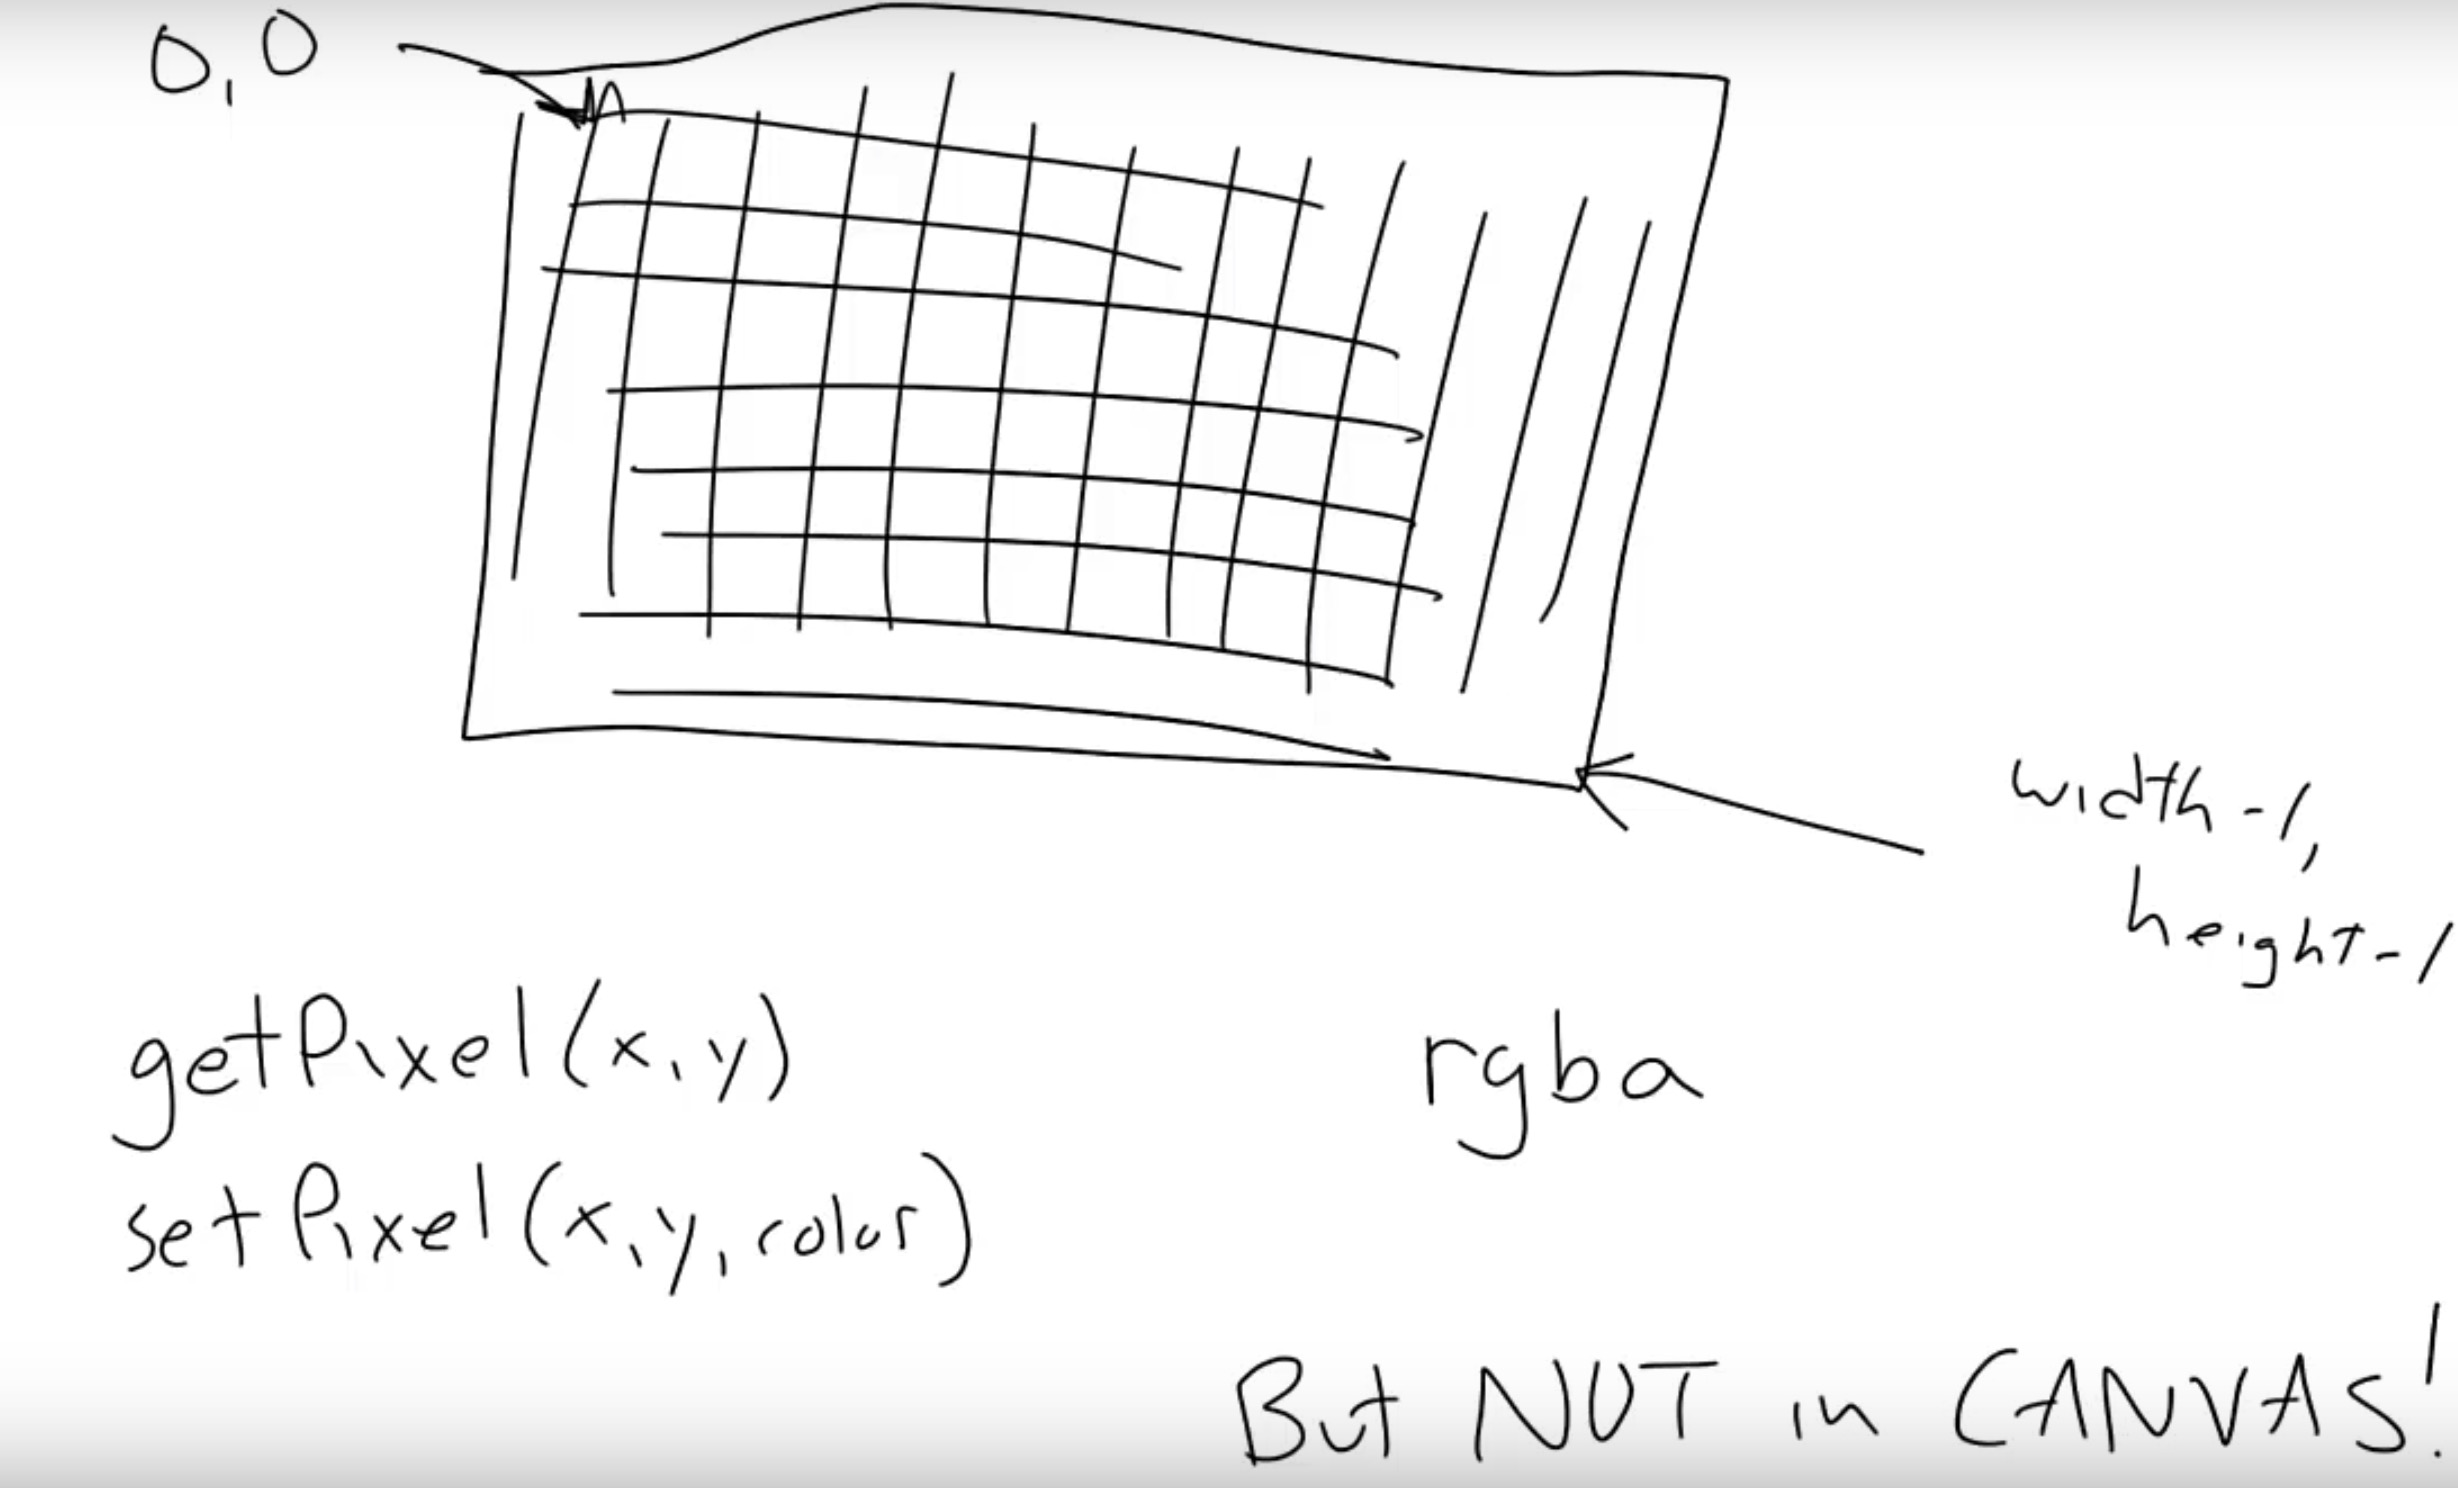 0,0
width-1,
height-1
getPixel(x,y)
rgba
setPixel(x,y,color)
But NOT in CANVAS!